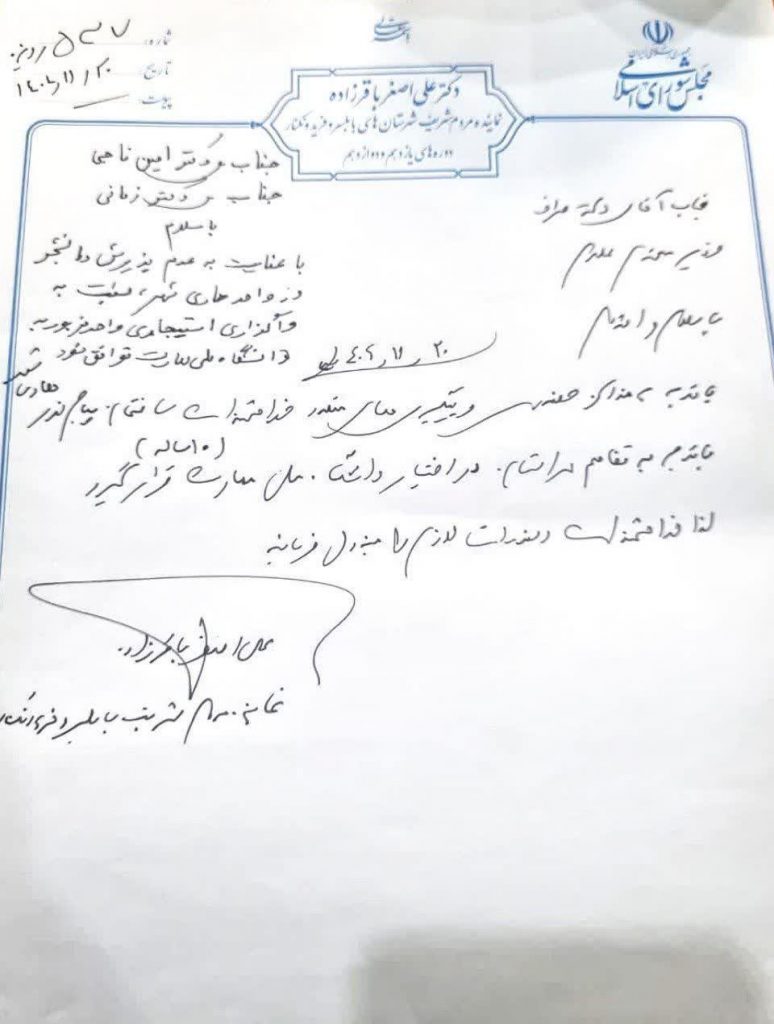 باسمه تعالی
جمهوری اسلامی ایران
مجلس شورای اسلامی
شماره: ۵۳۷
تاریخ: ۱۴۰۲/۱۱/۲۰
پیوست:
دکتر علی اصغر باقرزاده
نماینده مردم شریف شهرستان های بابلسر و فریدونکنار
دوره های یازدهم و دوازدهم
جناب آقای دکتر صراف
وزیر محترم علوم
با سلام و احترام
جناب دکتر امین ناجی
جناب دکتر زمانی
با سلام
با عنایت به عدم پذیرش دانشجو
در واحدهای شهر، نسبت به
واگذاری استیجاری واحد مزبور به
دانشگاه ملی مهارت توافق شود
۱۴۰۲/۱۱/۲۰
با توجه به مذاکره حضوری و پیگیری های متعدد خواهشمند است ساختمان پیام نور
با توجه به تفاهم در استان، در اختیار دانشگاه ملی مهارت قرار گیرد
(۱۰ ساله)
لذا خواهشمند است دستورات لازم را مبذول فرمایید
علی اصغر باقرزاده
نماینده مردم شریف بابلسر و فریدونکنار